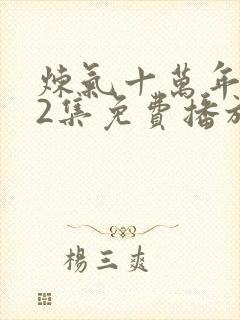 煉氣十萬年
2集免費播放
楊三爽